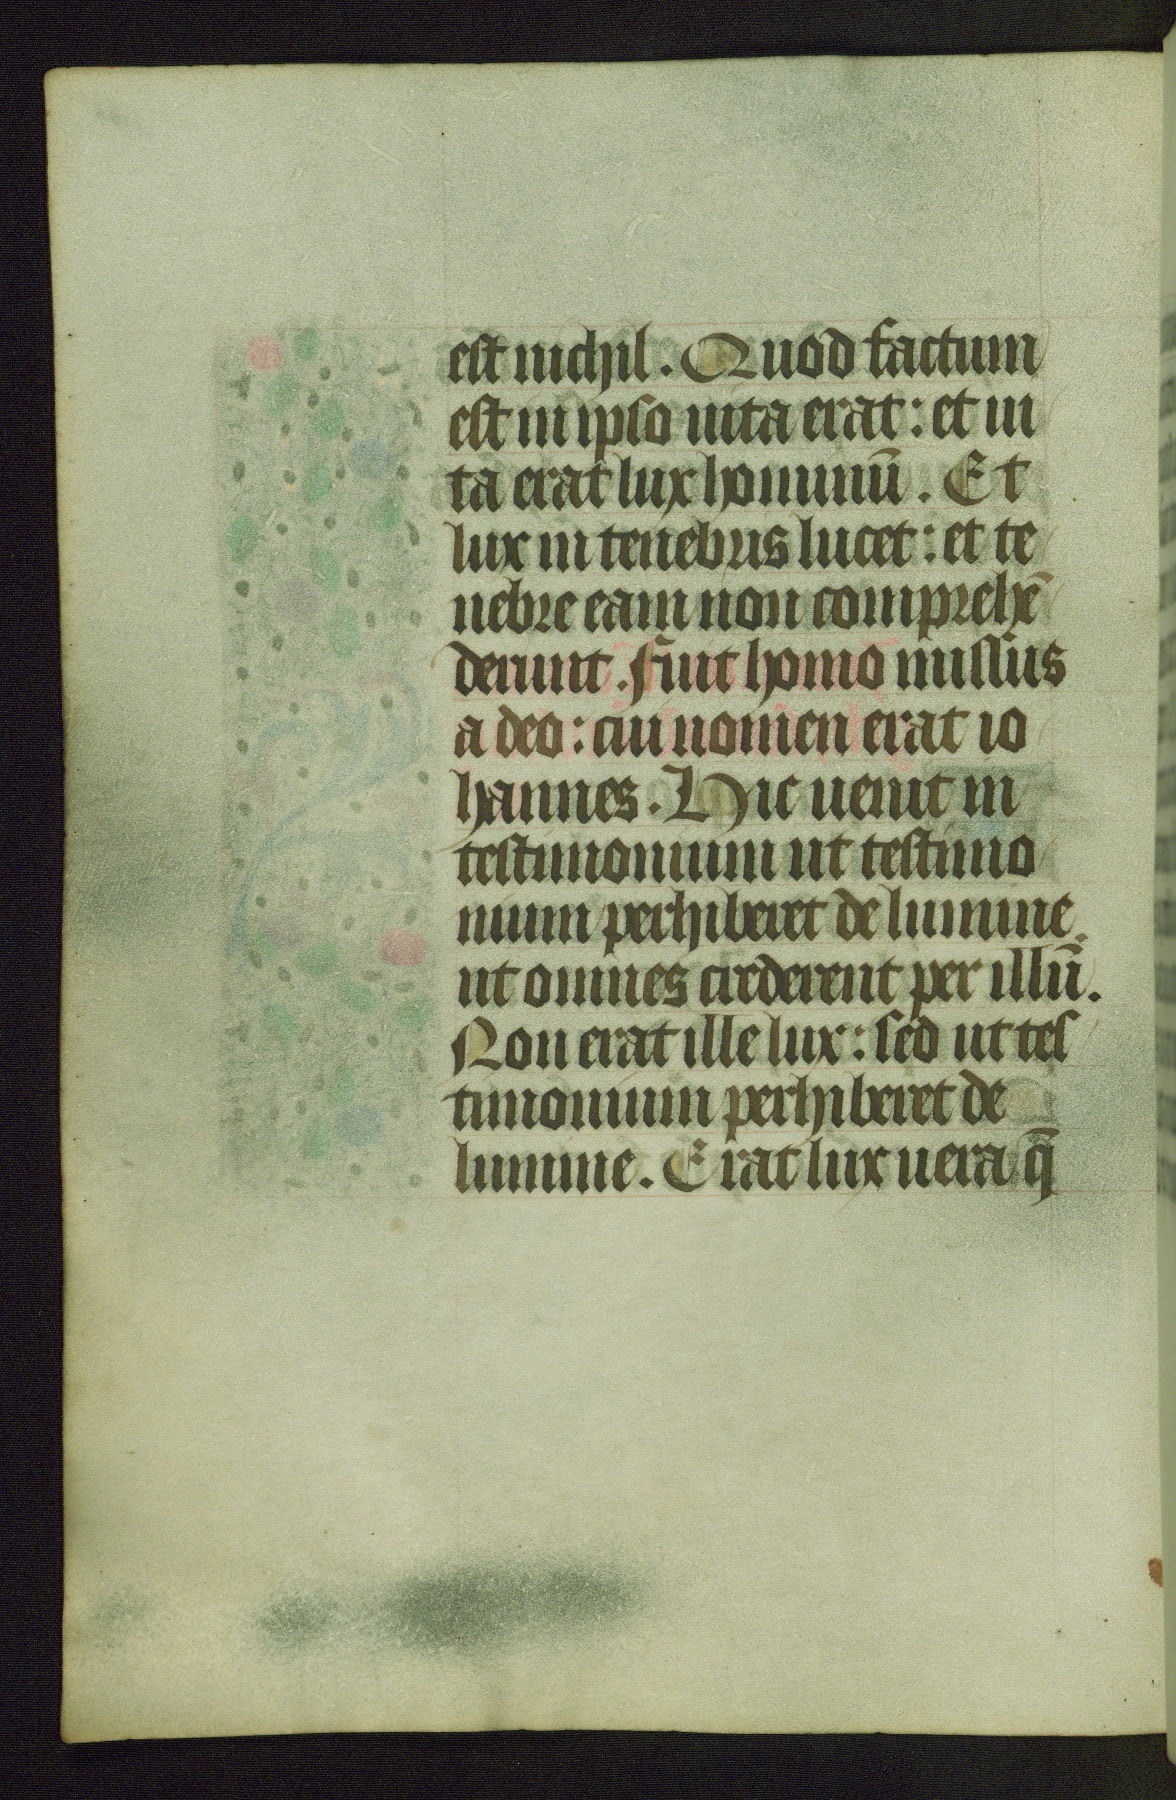 est nichil. Quod factum
est in ipso uita erat: et ui
ta erat lux hominū. Et
lux in tenebris lucet: et te
nebre eam non comprehē
derunt. Fuit homo missus
a deo: cui nomen erat io
hannes. Hic uenit in
testimonium ut testimo
nium perhiberet de lumine.
ut omnes crederent per illū.
Non erat ille lux: sed ut tes
timonium perhiberet de
lumine. Erat lux uera q̄